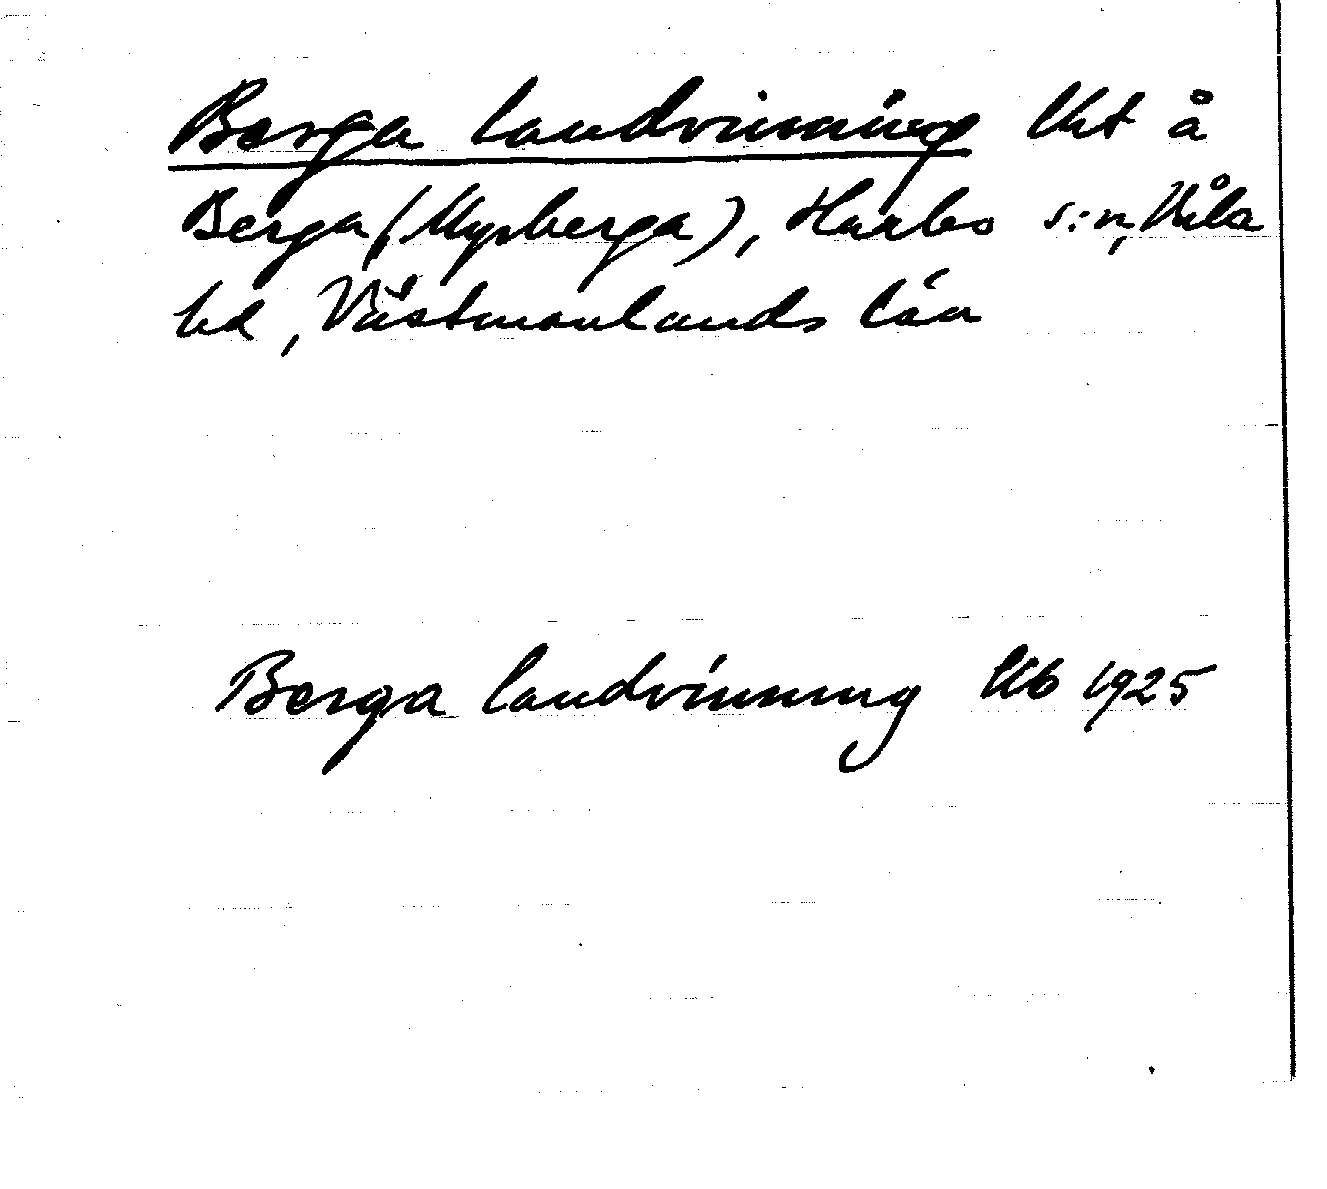 Berga landvinning Ukt å
Berga (Myrberga), Harbo s:n, Våla
hd, Västmanlands län
Berga landvinning Ub 1925